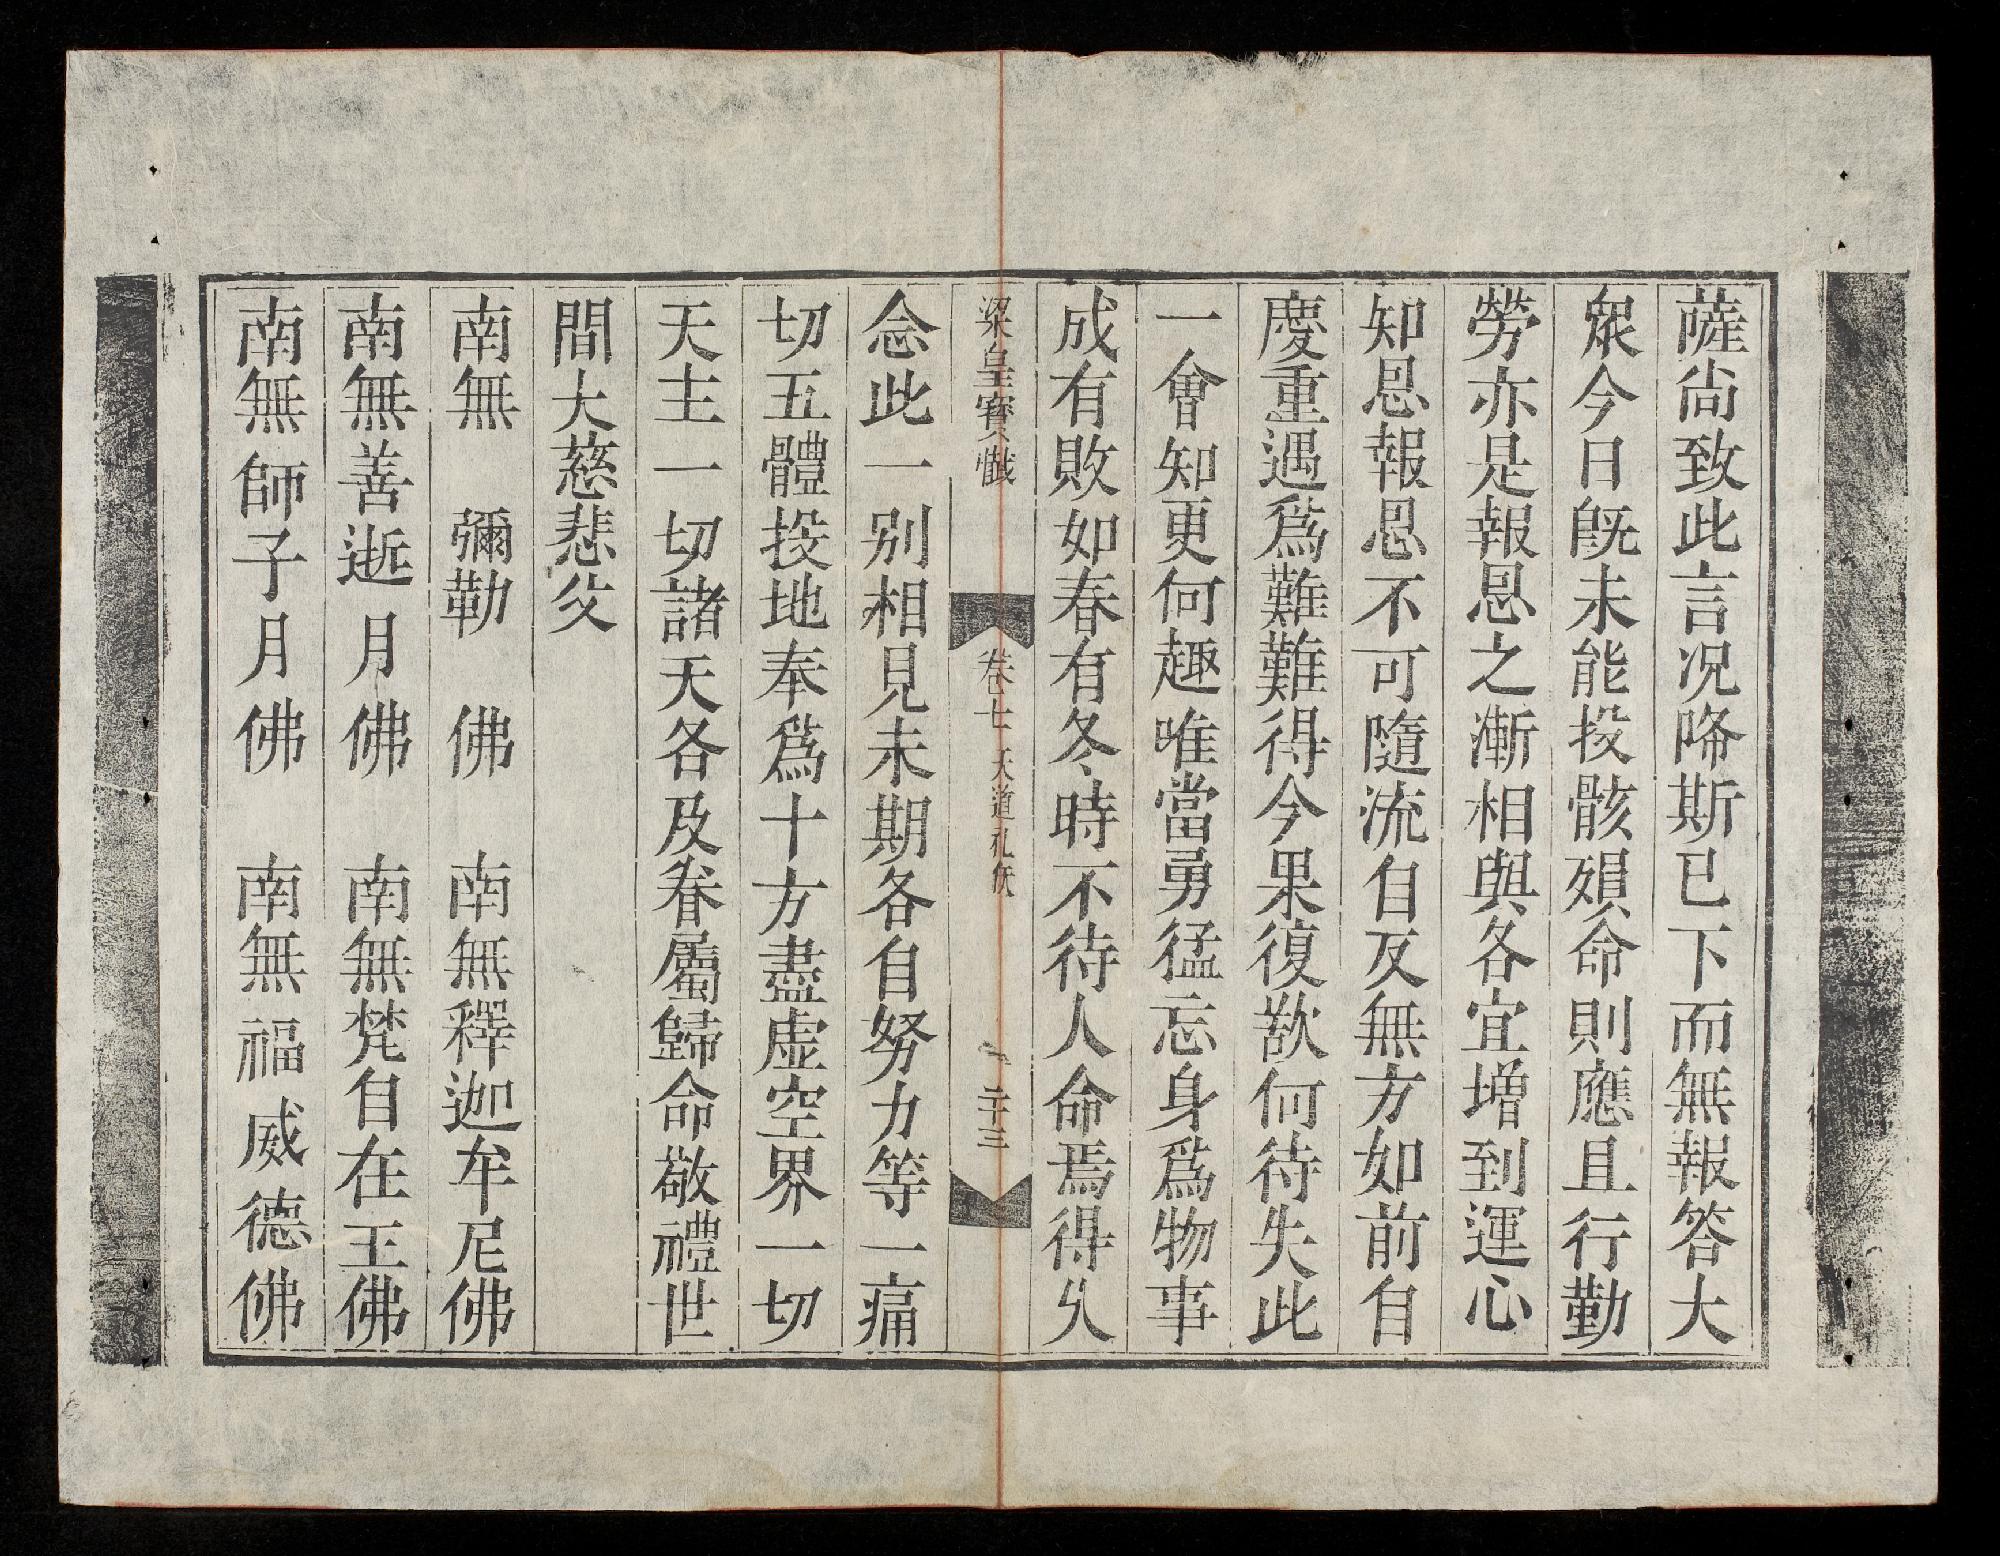 薩尚致此言况啼斯已下而無報答大
衆今日旣未能投骸殞命則應且行勤
勞亦是報恩之漸相與各宜增到運心
知恩報恩不可隨流自反無方如前自
慶重遇爲難難得今果復歎何待失此
一會知更何趣唯當勇猛忘身爲物事
成有敗如春有冬時不待人命焉得久
梁皇寶懺 卷七 天道礼佛 二十三
念此一别相見未期各自努力等一痛
切五體投地奉爲十方盡虚空界一切
天主一切諸天各及眷屬歸命敬禮世
間大慈悲父
南無 彌勒 佛 南無釋迦牟尼佛
南無善逝月佛 南無梵自在王佛
南無師子月佛 南無福威德佛